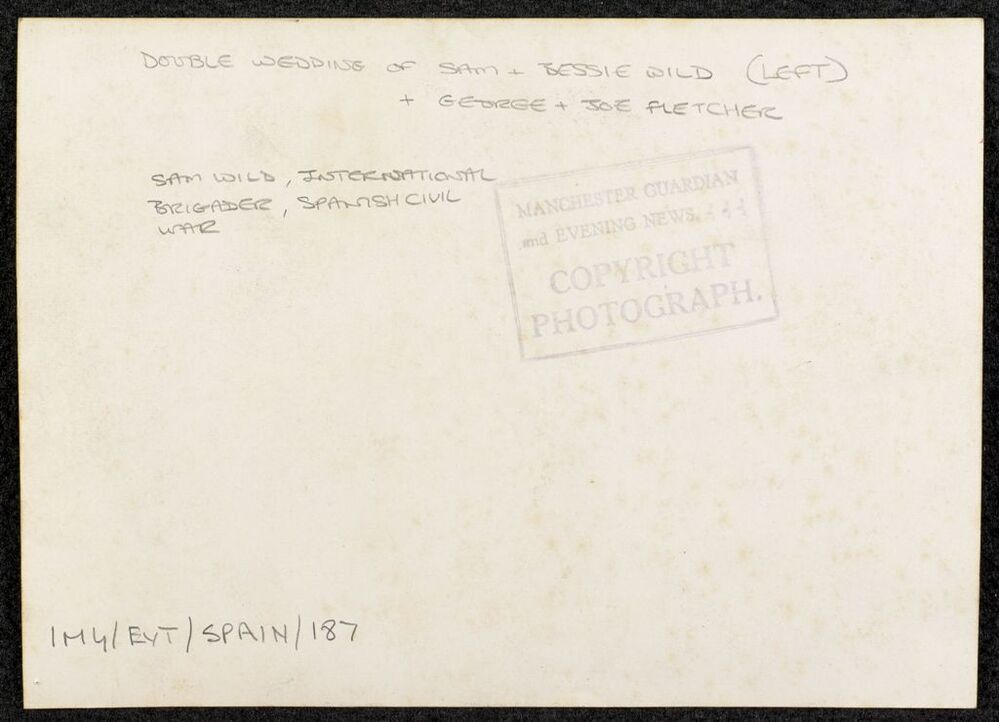 DOUBLE WEDDING OF SAM + BESSIE WILD (LEFT)
+ GEORGE + JOE FLETCHER
SAM WILD, INTERNATIONAL
BRIGADER, SPANISH CIVIL
WAR
MANCHESTER GUARDIAN
and EVENING NEWS.
COPYRIGHT
PHOTOGRAPH.
1M4/EVT/SPAIN/187